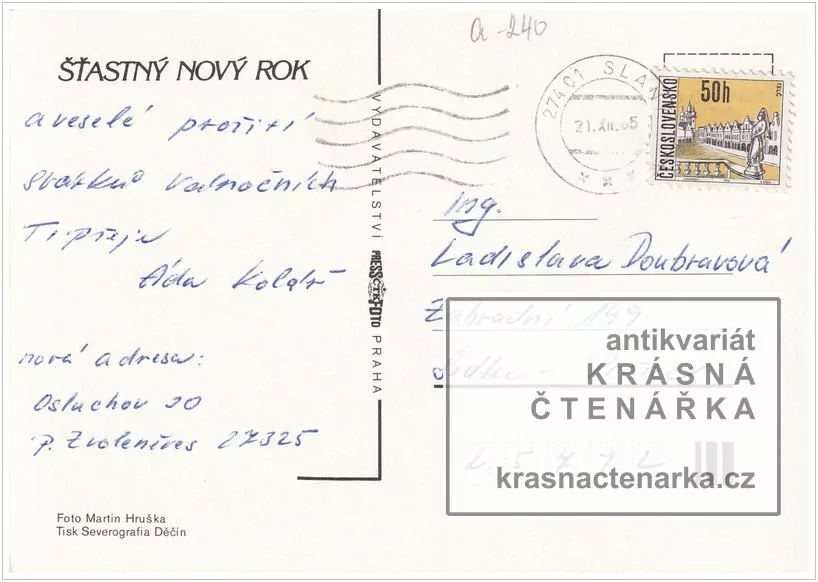 a-240
ŠŤASTNÝ NOVÝ ROK
a veselé prožití
svátků vánočních
Ti přeje
Áda Kolář
nová adresa:
Osluchov 20
p. Zvoleněves 27325
Foto Martin Hruška
Tisk Severografia Děčín
VYDAVATELSTVÍ PRESSFOTO PRAHA
ČTK
274 01 SLAN
21.XII.85
50h
ČESKOSLOVENSKO
TELČ
Ing.
Ladislava Doubravová
Zahradní 199
25792
antikvariát
KRÁSNÁ
ČTENÁŘKA
krasnactenarka.cz